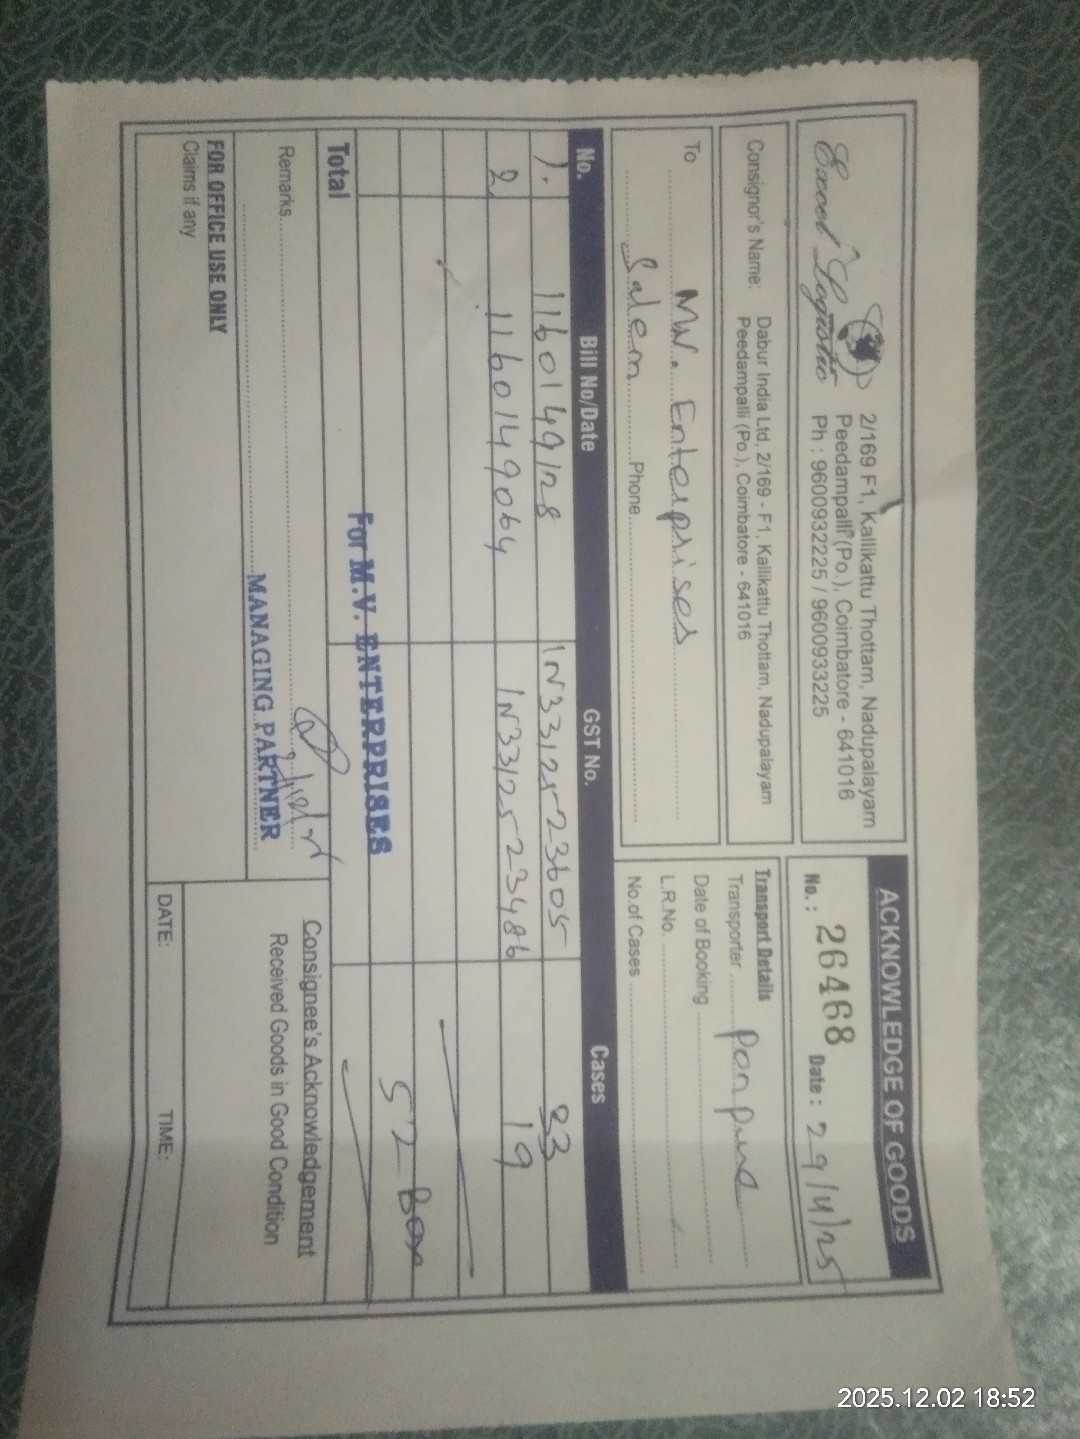 Excel Logistic
2/169 F1, Kallikattu Thottam, Nadupalayam
Peedampalli (Po.), Coimbatore - 641016
Ph : 9600932225 / 9600933225
ACKNOWLEDGE OF GOODS
No. : 26468 Date : 29/11/25
Consignor's Name: Dabur India Ltd, 2/169 - F1, Kallikattu Thottam, Nadupalayam
Peedampalli (Po.), Coimbatore - 641016
To M.V. Enterprises
Salem Phone
Transport Details
Transporter
Date of Booking
L.R.No.
No.of Cases
No. Bill No/Date GST No. Cases
1). 1160149128 IN3312523605 33
2) 1160149064 IN3312523486 19
52 Box
Total
For M.V. ENTERPRISES
Remarks
MANAGING PARTNER
Consignee's Acknowledgement
Received Goods in Good Condition
FOR OFFICE USE ONLY
Claims if any
DATE: TIME:
2025.12.02 18:52